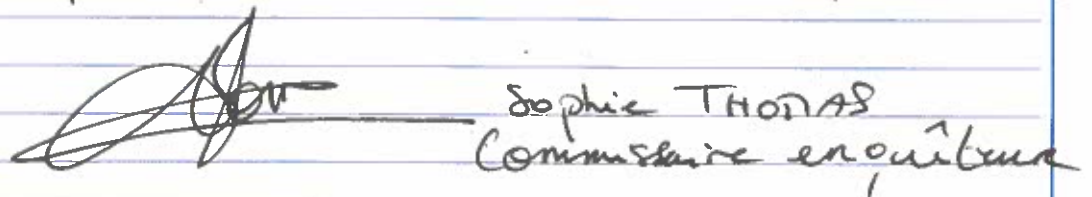 Sophie THOMAS
Commissaire enquêtrice